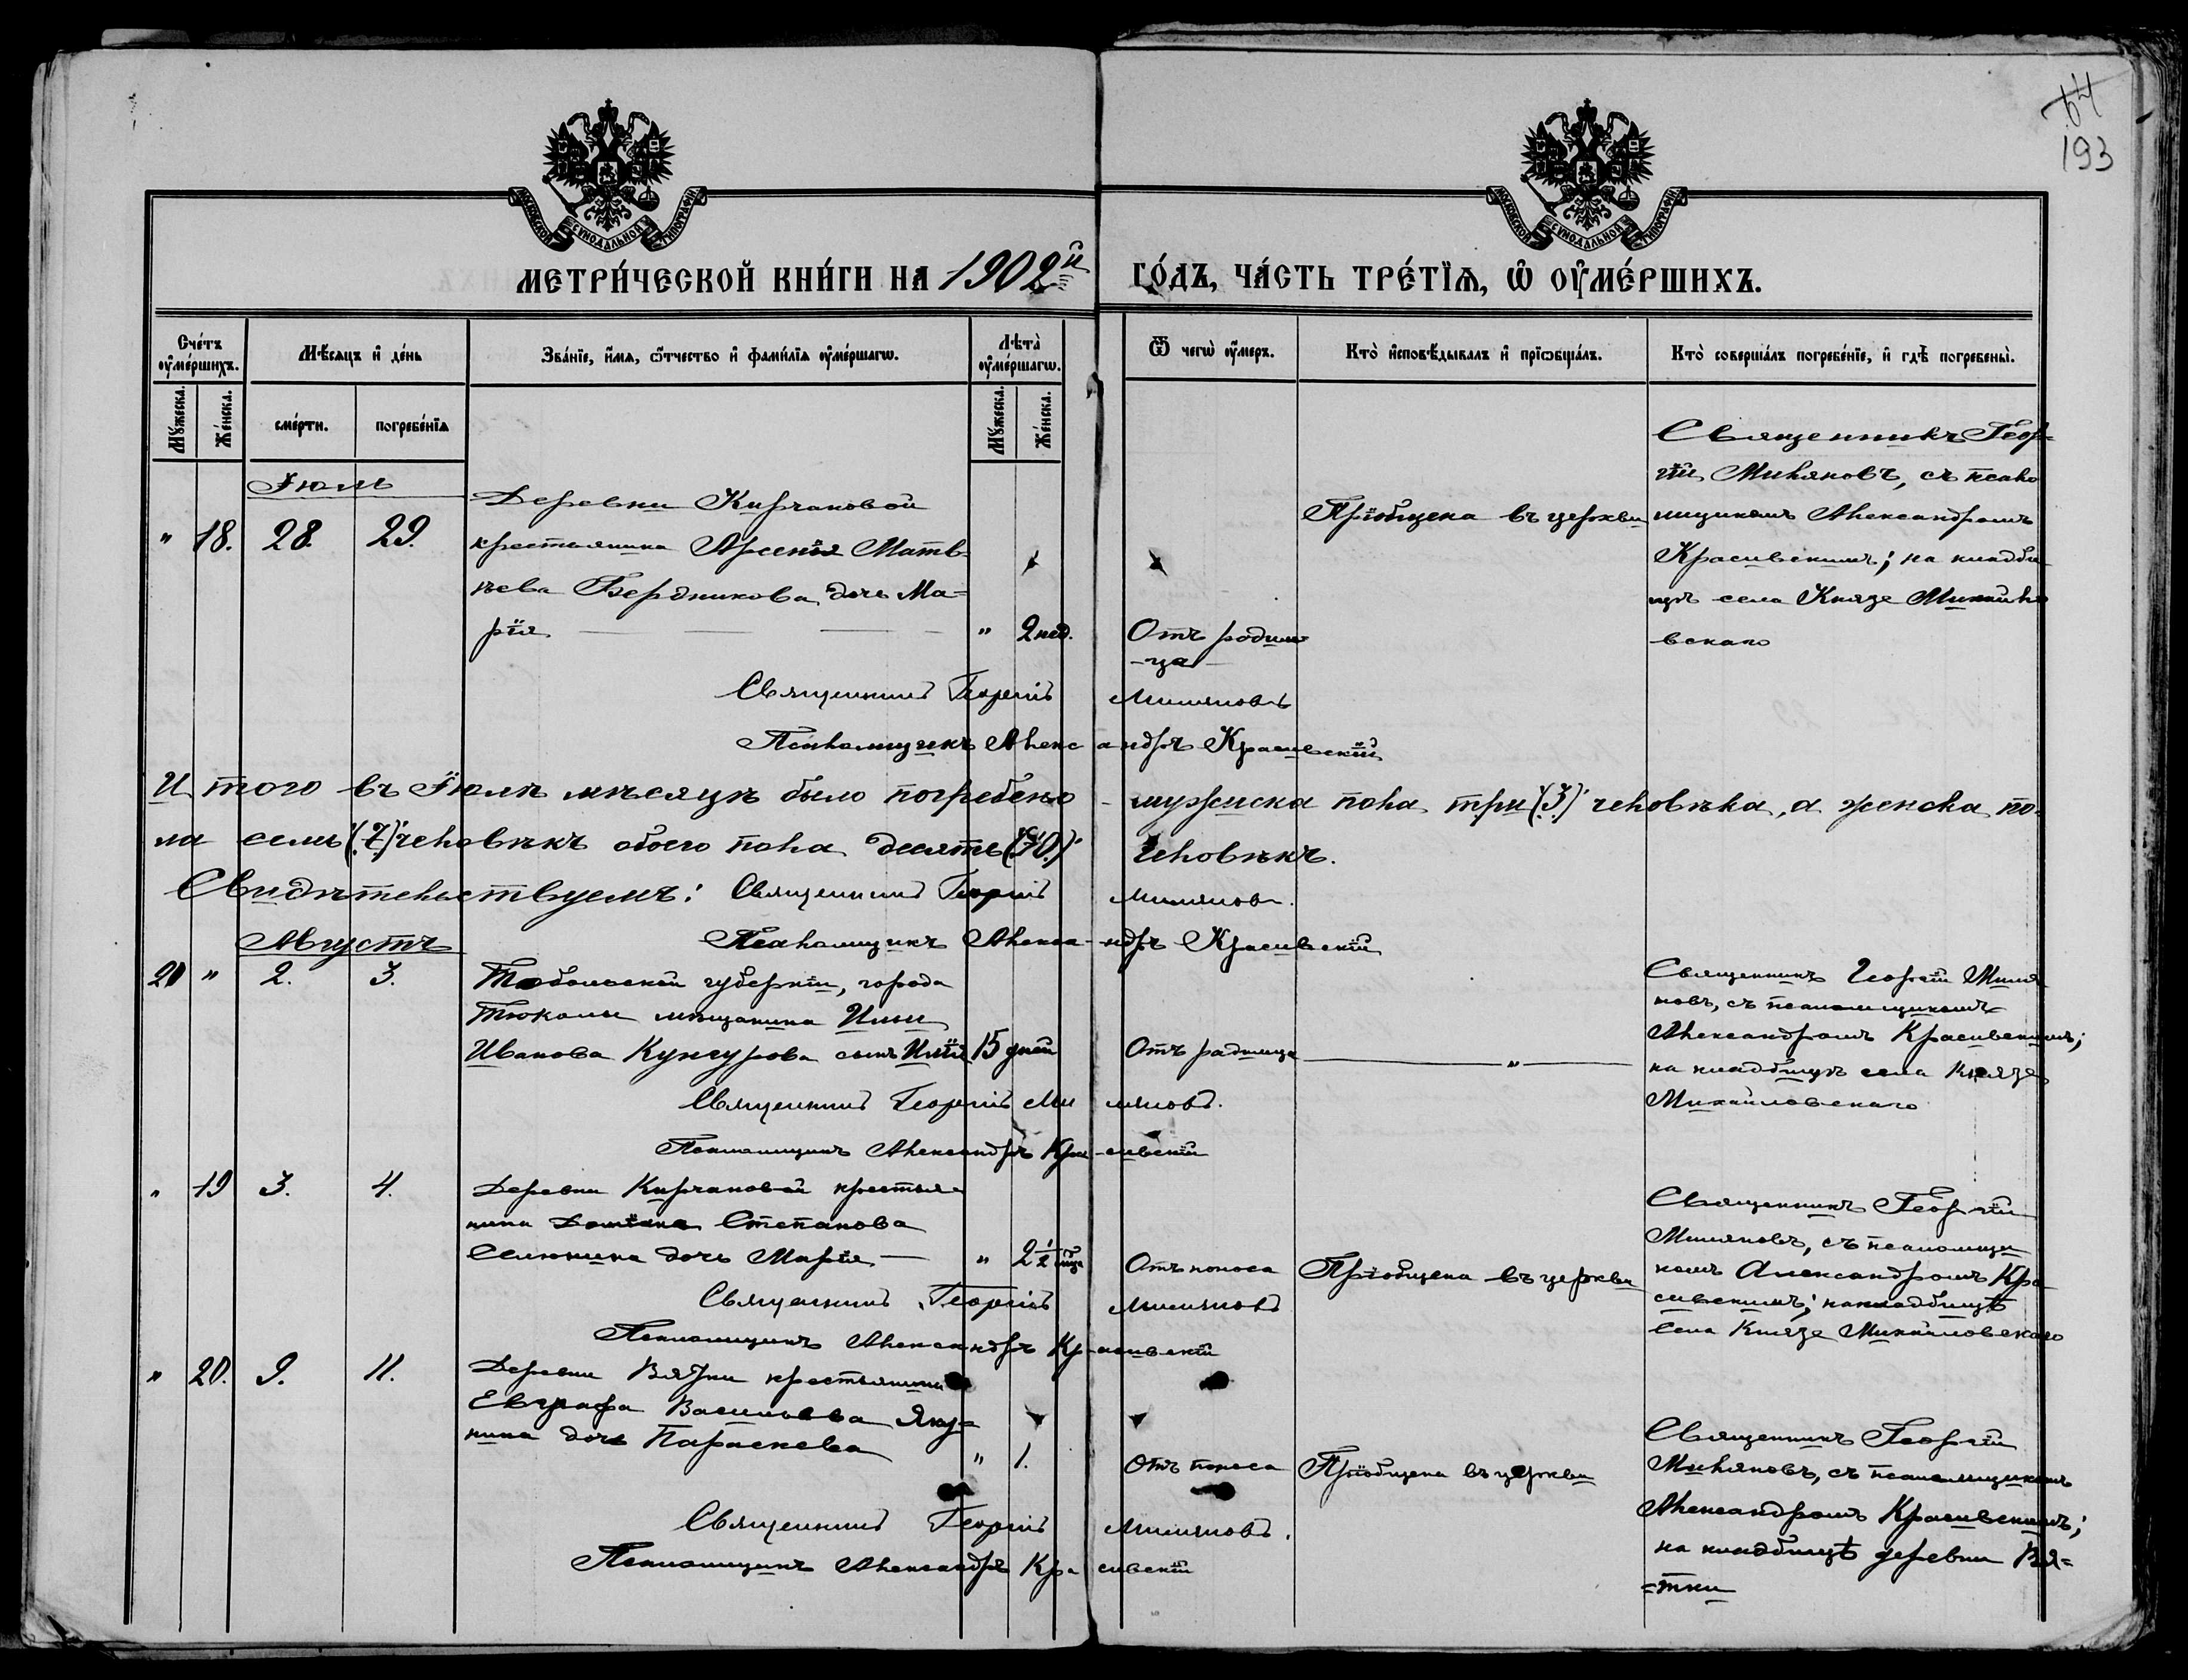 64
193
МОСКОВСКОЙ СѴНОДАЛЬНОЙ ТИПОГРАФІИ
МОСКОВСКОЙ СѴНОДАЛЬНОЙ ТИПОГРАФІИ
МЕТРИ́ЧЕСКОЙ КНИ́ГИ НА 1902й ГО́ДЪ, ЧА́СТЬ ТРЕ́ТІѦ, Ѡ҆ ОУ҆МЕ́РШИХЪ.
Сче́тъ оу҆ме́ршихъ.
Мꙋ́жеска.
Же́нска.
Мѣ́сѧцъ и҆ де́нь
сме́рти.
погребе́нїѧ
Зва́нїе, и҆́мѧ, ѻ҆́тчество и҆ фами́лїѧ оу҆ме́ршагѡ.
Лѣ̀та̀ оу҆ме́ршагѡ.
Мꙋ́жеска.
Же́нска.
Ѿ чегѡ̀ оу҆́меръ.
Кто̀ и҆сповѣ́дывалъ и҆ прїѡбща́лъ.
Кто̀ соверша́лъ погребе́нїе, и҆ гдѣ̀ погребены̀.
Іюль
" 18. 28. 29.
Деревни Кирчановой
крестьянина Арсенія Матв-
ѣева Бердникова дочь Ма=
рія
" 2 нед.
Отъ родим
-ца-
Пріобщена въ церкви
Священникъ Геор=
гій Миляновъ, съ псало
мщикомъ Александромъ
Красивскимъ; на кладби
щѣ села Князе Михайло
вскаго
Священникъ Георгій Миляновъ
Псаломщикъ Александръ Красивскій
Итого въ Іюлѣ мѣсяцѣ было погребено мужеска пола три (3) человѣка, а женска по-
ла семь (7) человѣкъ обоего пола десять (10) человѣкъ.
Свидѣтельствуемъ: Священникъ Георгій Миляновъ.
Псаломщикъ Александръ Красивскій
Августъ
20 " 2. 3.
Тобольской губерніи, города
Тюкалы мѣщанина Ильи
Иванова Кунгурова сынъ Илія
15 дней
Отъ родимца
"
Священникъ Георгій Миля
новъ, съ псаломщикомъ
Александромъ Красивскимъ;
на кладбищѣ села Князе
Михайловскаго
Священникъ Георгій Миляновъ.
Псаломщикъ Александръ Красивскій
" 19 3. 4.
Деревни Кирчановой крестья-
нина Степанова
Селюнина дочь Марія
" 2 1/2 мца
Отъ поноса
Пріобщена въ церкви
Священникъ Георгій
Миляновъ, съ псаломщи
комъ Александромъ Кра
сивскимъ; на кладбищѣ
села Князе Михайловскаго
Священникъ Георгій Миляновъ
Псаломщикъ Александръ Красивскій
" 20. 9. 11.
Деревни Вятки крестьянина
Евграфа Васильева Яку=
нина дочь Параскева
" 1.
Отъ поноса
Пріобщена въ церкви
Священникъ Георгій
Миляновъ, съ псаломщикомъ
Александромъ Красивскимъ;
на кладбищѣ деревни Вя=
=тки
Священникъ Георгій Миляновъ.
Псаломщикъ Александръ Красивскій